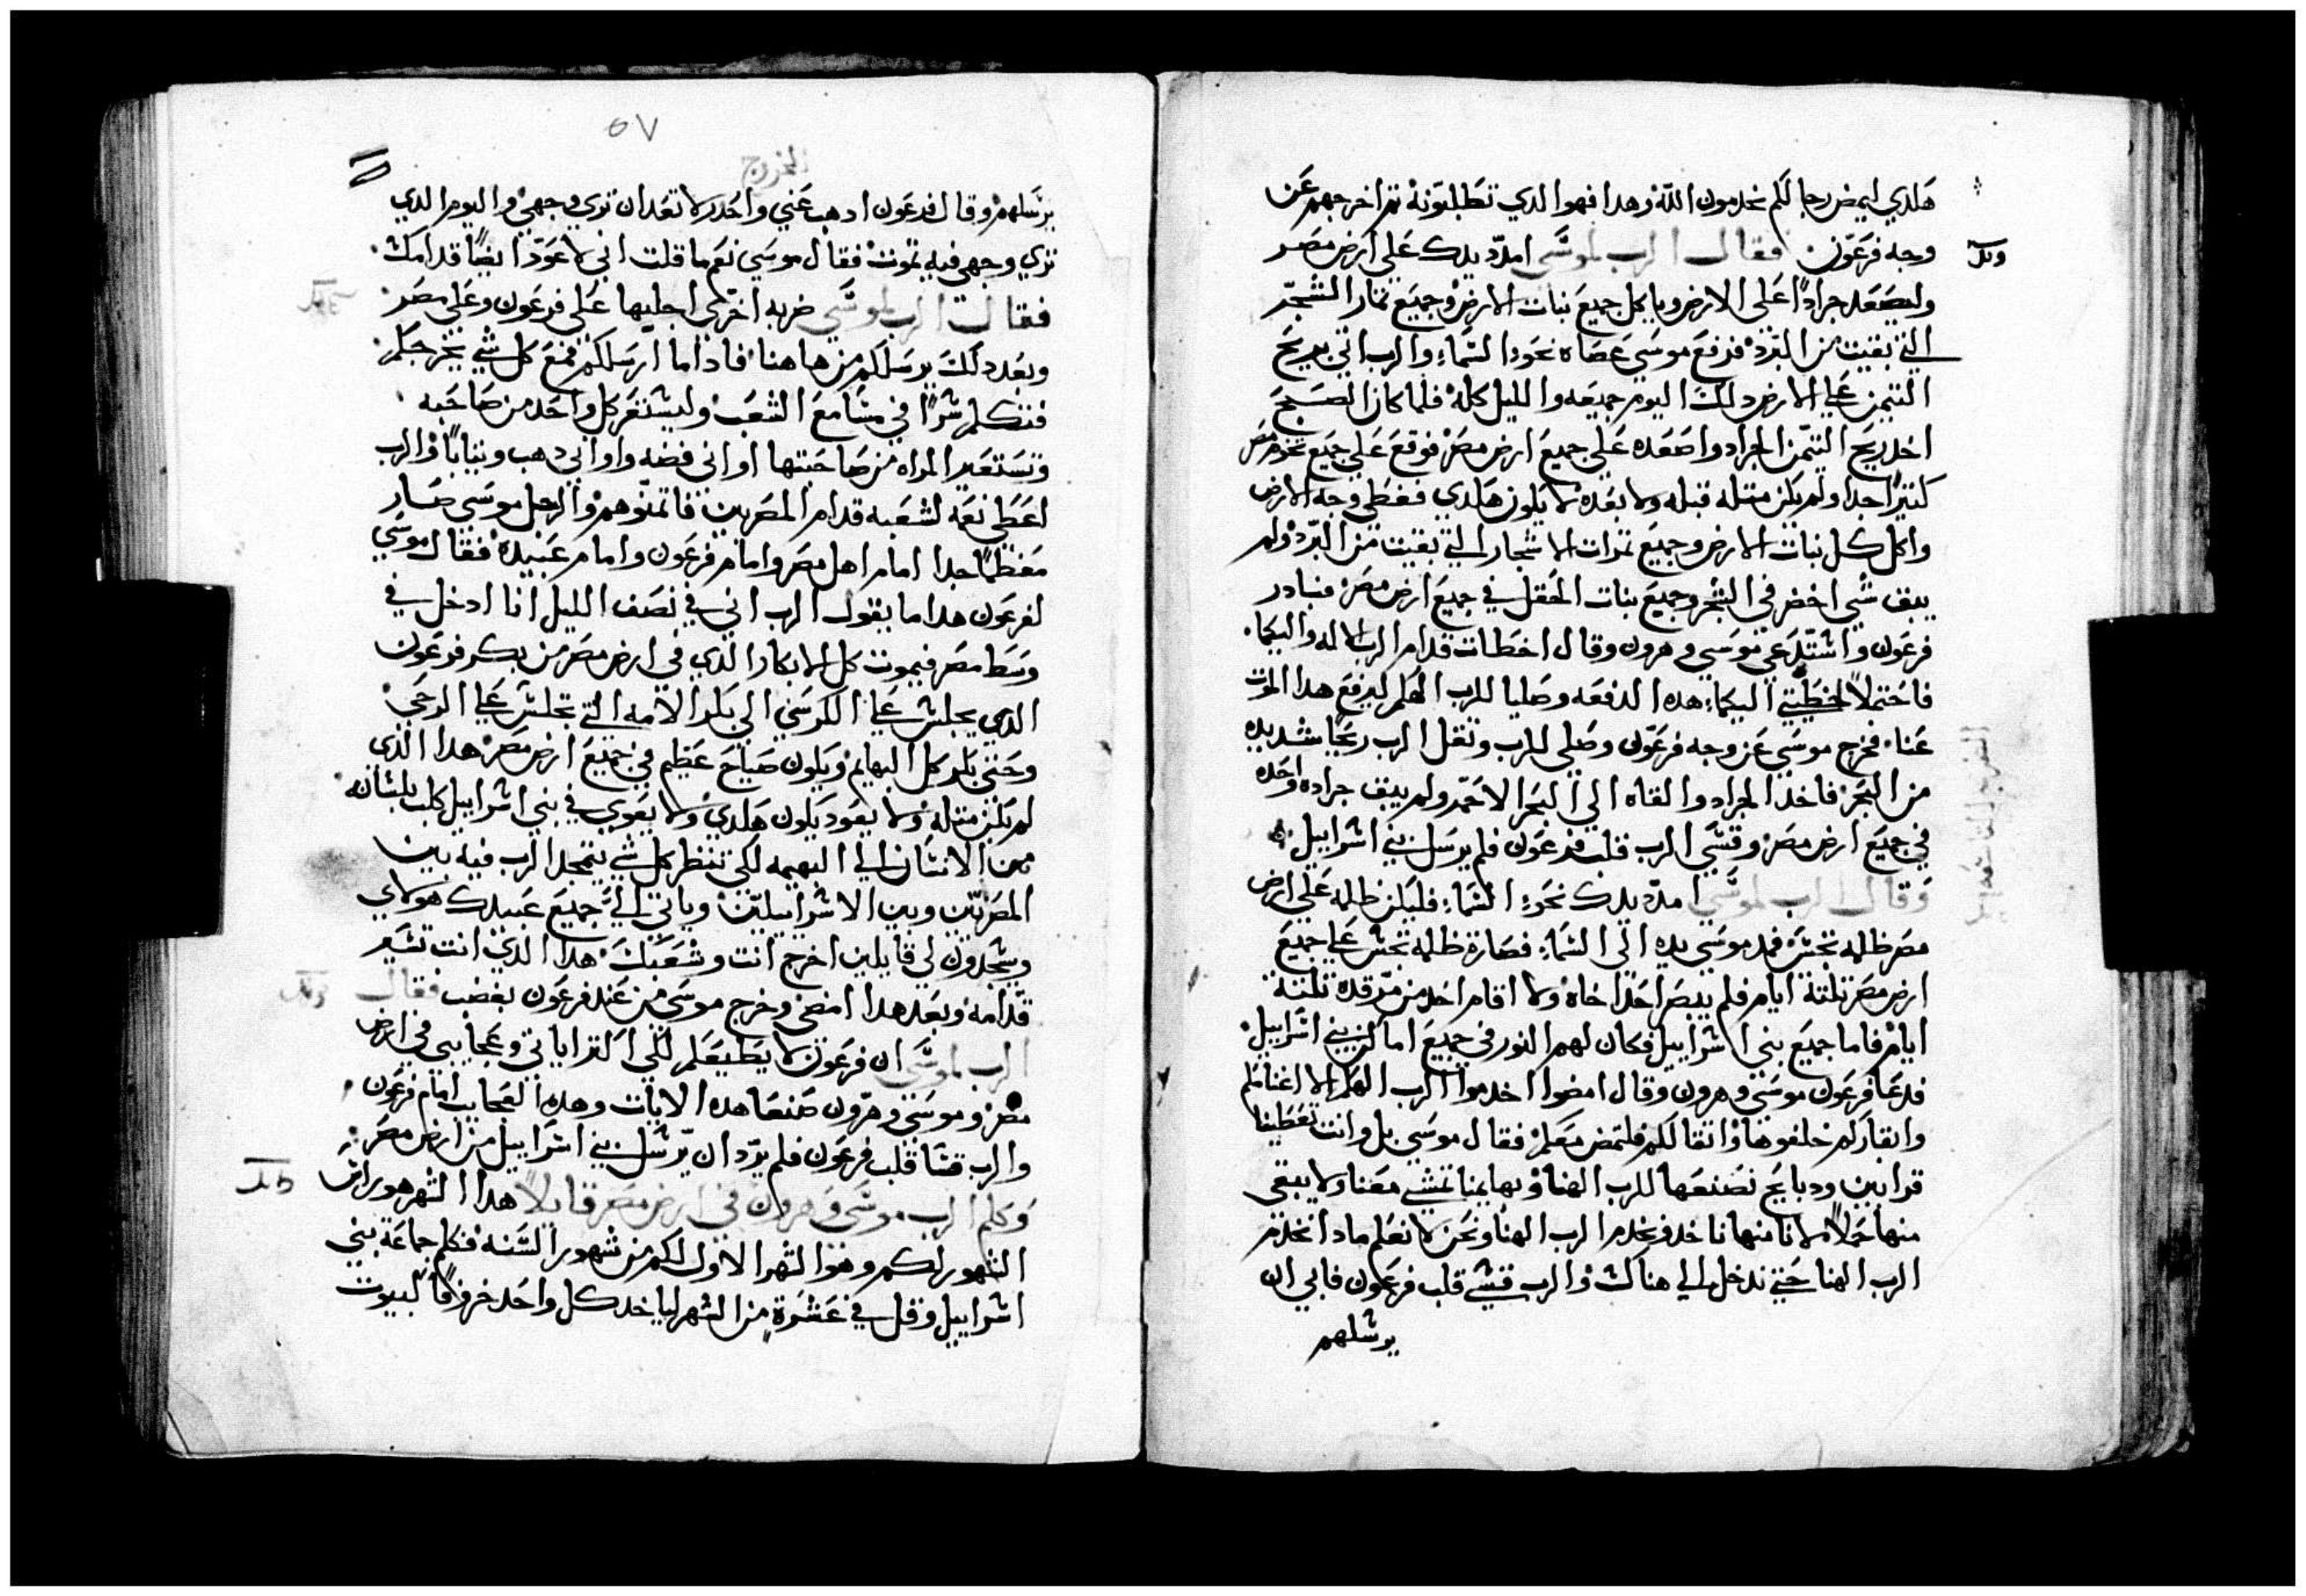 هكدي ليمض رجالكم يخدمون الله وهدا فهو الدي تطلبونه ثم اخرجهم عن
وجه فرعون. فقال الرب لموسي امدد يدك علي ارض مصر
وليصعد جرادًا علي الارض وياكل جميع نبات الارض وجميع ثمار الشجر
التي بقيت من البرد فرفع موسي عصاه نحو السماء والرب اتي بريح
التيمن علي الارض دلك اليوم جميعه والليل كله فلما كان الصبح
اخد ريح التيمن الجراد واصعده علي جميع ارض مصر فوقع علي جميع تخوم مصر
كتيرًا جدا ولم يكن متله قبله ولا بعده لا يكون هكدي فغطي وجه الارض
واكل كل نبات الارض وجميع تمرات الاشجار التي بقيت من البرد ولم
يبق شي اخضر في الشجر وجميع نبات الحقل في جميع ارض مصر فبادر
فرعون واستدعي موسي وهرون وقال اخطات قدام الرب الاله واليكما.
فاحتملا خطيتي اليكما هده الدفعه وصليا للرب الهكم ليرفع هدا الموت
عنا. فخرج موسي عن وجه فرعون وصلي للرب ونقل الرب ريحًا شديده
من البحر فاخد الجراد والقاه الي البحر الاحمر ولم يبق جراده واحده
في جميع ارض مصر وقسي الرب قلب فرعون فلم يرسل بني اسراييل.
وقال الرب لموسي امدد يدك نحو السماء فليكن ظلمه علي ارض
مصر ظلمه تحس فمد موسي يده الي السماء فصارة ظلمه تحس علي جميع
ارض مصر تلتة ايام فلم يبصر احدًا اخاه ولا اقام احد من مرقده تلتة
ايام فاما جميع بني اسراييل فكان لهم النور في جميع اماكن بني اسراييل.
فدعا فرعون موسي وهرون وقال امضوا اخدموا الرب الهكم الا اغنامكم
وابقاركم خلفوها واتقالكم فلتمض معكم فقال موسي بل وانت تعطينا
قرابين ودبايح نصنعها للرب الهنا وبهايمنا تمشي معنا ولا يبقي
منها حملًا لانا منها ناخد ونخدم الرب الهنا ونحن لا نعلم مادا نخدم
الرب الهنا حتي ندخل الي هناك والرب قسي قلب فرعون فابي ان
يرسلهم
٥٧
الخروج
يرسلهم وقال فرعون ادهب عني واحدر لا تعد ان تري وجهي واليوم الدي
تري وجهي فيه تموت فقال موسي نعم ما قلت اني لا عود ايضًا قدامك.
فقال الرب لموسي ضربه اخري اجلبها علي فرعون وعلي مصر
وبعد دلك يرسلكم من هاهنا فادا ما ارسلكم فمع كل شي يخرجكم.
فتكلم سرًا في مسامع الشعب وليستعر كل واحد من صاحبه
وتستعير المراه من صاحبتها اواني فضه واواني دهب وتيابًا والرب
اعطي نعمه لشعبه قدام المصريين فاتمنوهم والرجل موسي صار
معظمًا جدا امام اهل مصر وامام فرعون وامام عبيده فقال موسي
لفرعون هدا ما يقول الرب اني في نصف الليل انا ادخل في
وسط مصر فيموت كل الابكار الدي في ارض مصر من بكر فرعون
الدي يجلس علي الكرسي الي بكر الامه التي تجلس علي الرحي
وحتي بكر كل البهايم ويكون صياح عظيم في جميع ارض مصر هدا الدي
لم يكن متله ولا يعود يكون هكدي ولا يعوي في بني اسراييل كلب بلسانه.
من الانسان الي البهيمه لكي تنظر كل شي يتمجد الرب فيه بين
المصريين وبين الاسراييليين وياتي الي جميع عبيدك هولاي
ويسجدون لي قايلين اخرج انت وشعبك هدا الدي انت تسير
قدامه وبعد هدا امضي وخرج موسي من عند فرعون بغضب فقال
الرب لموسي ان فرعون لا يطيعكم لكي اكتر اياتي وعجايبي في ارض
مصر وموسي وهرون صنعا هده الايات وهده العجايب امام فرعون
والرب قسا قلب فرعون فلم يرد ان يرسل بني اسراييل من ارض مصر
وكلم الرب موسي وهرون في ارض مصر قايلًا هدا الشهر هو راس
الشهور لكم وهو الشهر الاول لكم من شهور السنه فكلم جماعة بني
اسراييل وقل في عشرة من الشهر لياخد كل واحد خروفًا لبيوت